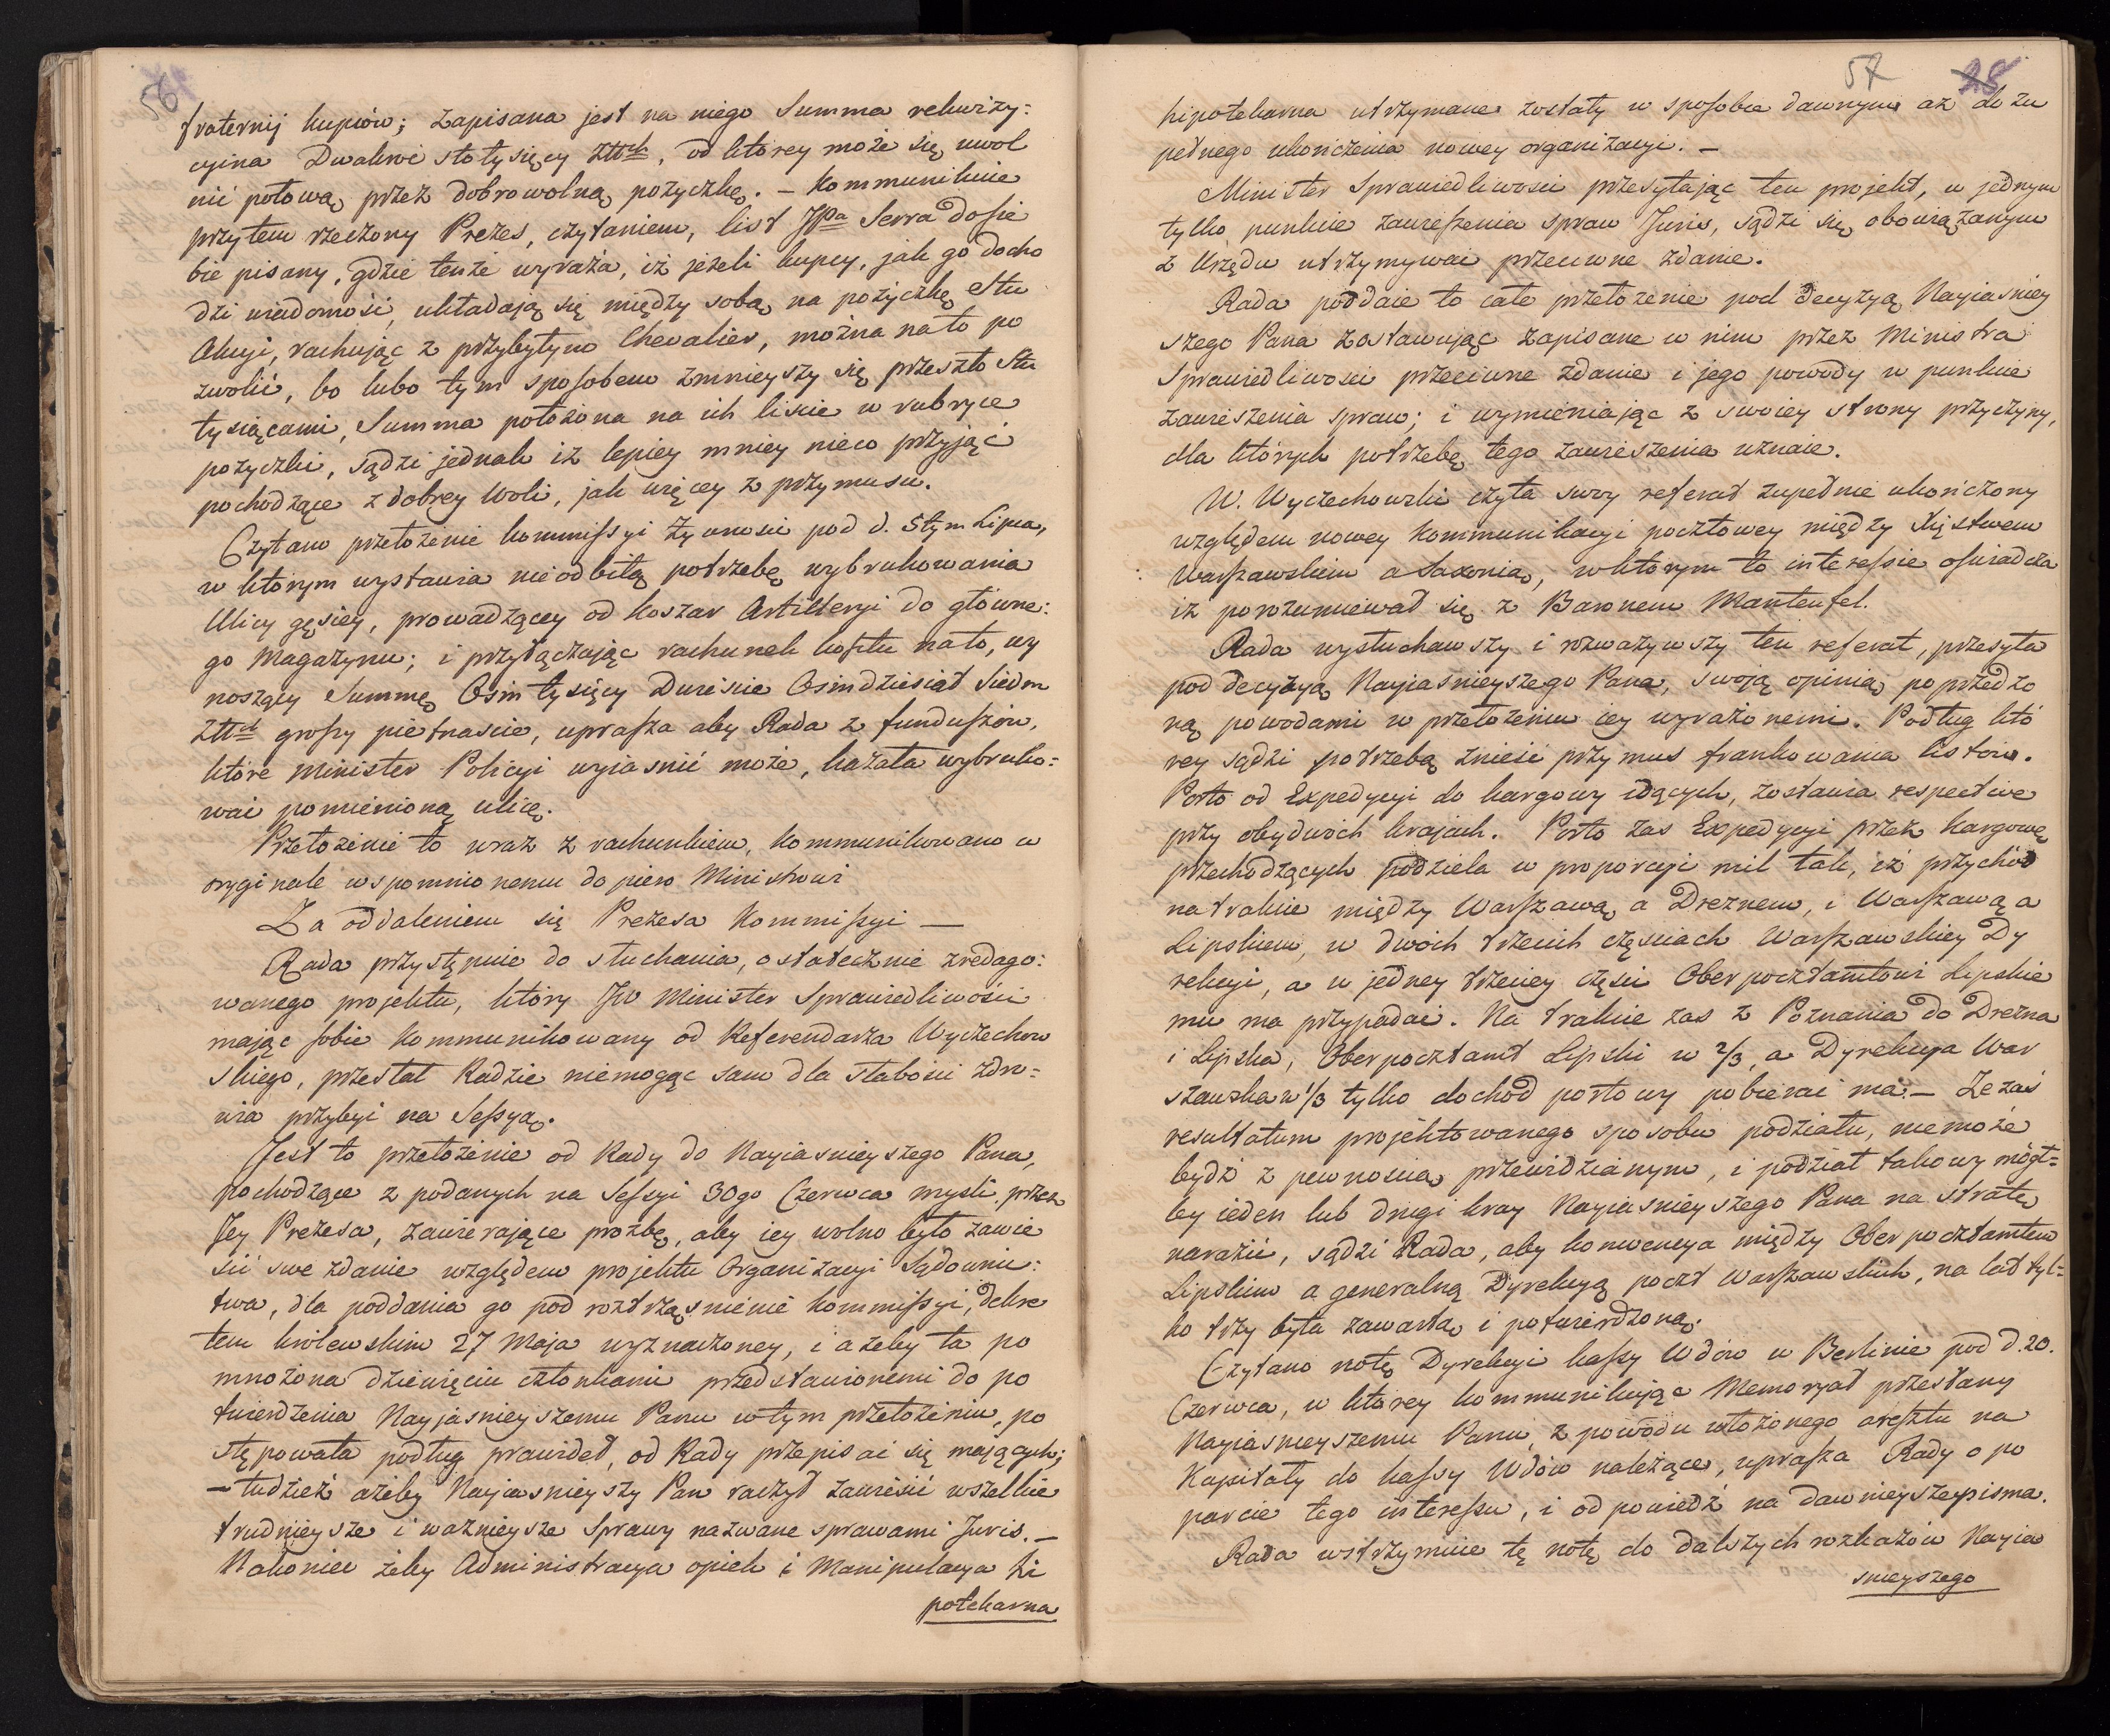 56
fraternij kupiów; zapisana jest na niego Summa rekwizy:
cyina Dwakroć stotysięcy Złłch, od którey może się uwol
nić połową przez dobrowolną pożyczkę. – Kommunikuie
przytem rzeczony Prezes, czytaniem, list JPa Serra do sie
bie pisany, gdzie tenże wyraża, iż jeżeli kupcy, jak go docho
dzi wiadomość, układają się między sobą na pożyczkę stu
Akcyi, rachując z przybytym Chevalier, można na to po
zwolić, bo lubo tym sposobem zmnieyszy się przeszło stu
tysiącami, Summa położona na ich liście w rubryce
pożyczki, sądzi jednak iż lepiey mniey nieco przyjąć
pochodzące z dobrey woli, jak więcey z przymusu.
Czytano przełożenie kommissyi Żywności pod d. 5tym Lipca,
w którym wystawia nieodbitą potrzebę wybrukowania
Ulicy gęsiey, prowadzącey od koszar Artilleryi do główne:
go Magazynu; i przyłączając rachunek kosztu na to, wy
noszący Summę Osim tysięcy Dwieście Osimdziesiąt Siedm
Złłch groszy pietnaście, uprasza aby Rada z funduszów,
które Minister Policyi wyiaśnić może, kazała wybruko=
wać pomienioną ulicę.
Przełożenie to wraz z rachunkiem, kommunikowano w
oryginale wspomnionemu dopiero Ministrowi
Za oddaleniem się Prezesa Kommissyi —
Rada przystępuie do słuchania, ostatecznie zredago:
wanego projektu, który JW Minister Sprawiedliwości
mając sobie kommunikowany od Referendarza Wyczechow
skiego, przesłał Radzie niemogąc sam dla słabości zdro=
wia przybyć na Sessyą.
Jest to przełożenie od Rady do Nayiaśnieyszego Pana,
pochodzące z podanych na Sessyi 30go Czerwca myśli przez
Jey Prezesa, zawieraiące prozbę, aby iey wolno było zawie
sić swe zdanie względem projektu Organizacyi Sądownic:
twa, dla poddania go pod roztrząśnienie kommissyi, dekre
tem królewskim 27 Maja wyznaczoney, i ażeby ta po
mnożona dziewięciu członkami przedstawionemi do po
twierdzenia Nayjaśnieyszemu Panu w tym przełożeniu, po
stępowała podług prawideł, od Rady przepisać się mających;
– tudzież ażeby Nayiaśnieyszy Pan raczył zawiesić wszelkie
trudnieysze i ważnieysze Sprawy nazwane sprawami Juris. –
Nakoniec żeby Administracya opiek i Manipulacya hi
potekarna
57 28
hipotekarna utrzymane zostały w sposobie dawnym aż do zu
pełnego ukończenia nowey organizacyi. –
Minister Sprawiedliwości przesyłając ten projekt, w jednym
tylko punkcie zawieszenia spraw Juris, sądzi się obowiązanym
z Urzędu utrzymywać przeciwne zdanie.
Rada poddaie to całe przełożenie pod decyzyą Nayiaśniey
szego Pana zostawując zapisane w nim przez Ministra
Sprawiedliwości przeciwne zdanie i jego powody w punkcie
zawieszenia spraw; i wymieniając z swoiey strony przyczyny,
dla których potrzebę tego zawieszenia uznaie.
W. Wyczechowski czyta swoy referat zupełnie ukończony
względem nowey kommunikacyi pocztowey między Xięstwem
Warszawskiem a Saxonią, w którym to interessie oświadcza
iż porozumiewał się z Baronem Manteufel.
Rada wysłuchawszy i rozważywszy ten referat, przesyła
pod decyzyą Nayiaśnieyszego Pana, swoją opinią poprzedzo
ną powodami w przełożeniu iey wyrażonemi. Podług któ
rey sądzi potrzebą znieść przymus frankowania listów.
Porto od Expedycyi do kargowy idących, zostawia respective
przy obydwóch krajach. Porto zas Expedycyi przez kargowę
przechodzących podziela w proporcyi mil tak, iż przychód
na trakcie między Warszawą a Dreznem, i Warszawą a
Lipskiem, w dwóch trzecich częściach Warszawskiey Dy
rekcyi, a w jedney trzeciey części Oberpocztamtowi Lipskie
mu ma przypadać. Na trakcie zas z Poznania do Drezna
i Lipska, Oberpocztamt Lipski w 2/3, a Dyrekcya War
szawska w 1/3 tylko dochód portowy pobierać ma. – Ze zaś
resultatum projektowanego sposobu podziału, niemoże
bydź z pewnością przewidzianym, i podział takowy mógł=
by ieden lub drugi kray Nayiaśnieyszego Pana na stratę
narazić, sądzi Rada, aby konwencya między Oberpocztamtem
Lipskim a generalną Dyrekcyą poczt Warszawskich, na lat tyl=
ko trzy była zawartą i potwierdzoną.
Czytano notę Dyrekcyi kassy Wdów w Berlinie pod d. 20.
Czerwca, w którey kommunikując Memoryał przesłany
Nayiaśnieyszemu Panu, z powodu włożonego aresztu na
Kapitały do kassy Wdów należące, uprasza Rady o po
parcie tego interessu, i odpowiedź na dawnieysze pisma.
Rada wstrzymuie tę notę do dalszych rozkazów Nayia
śnieyszego